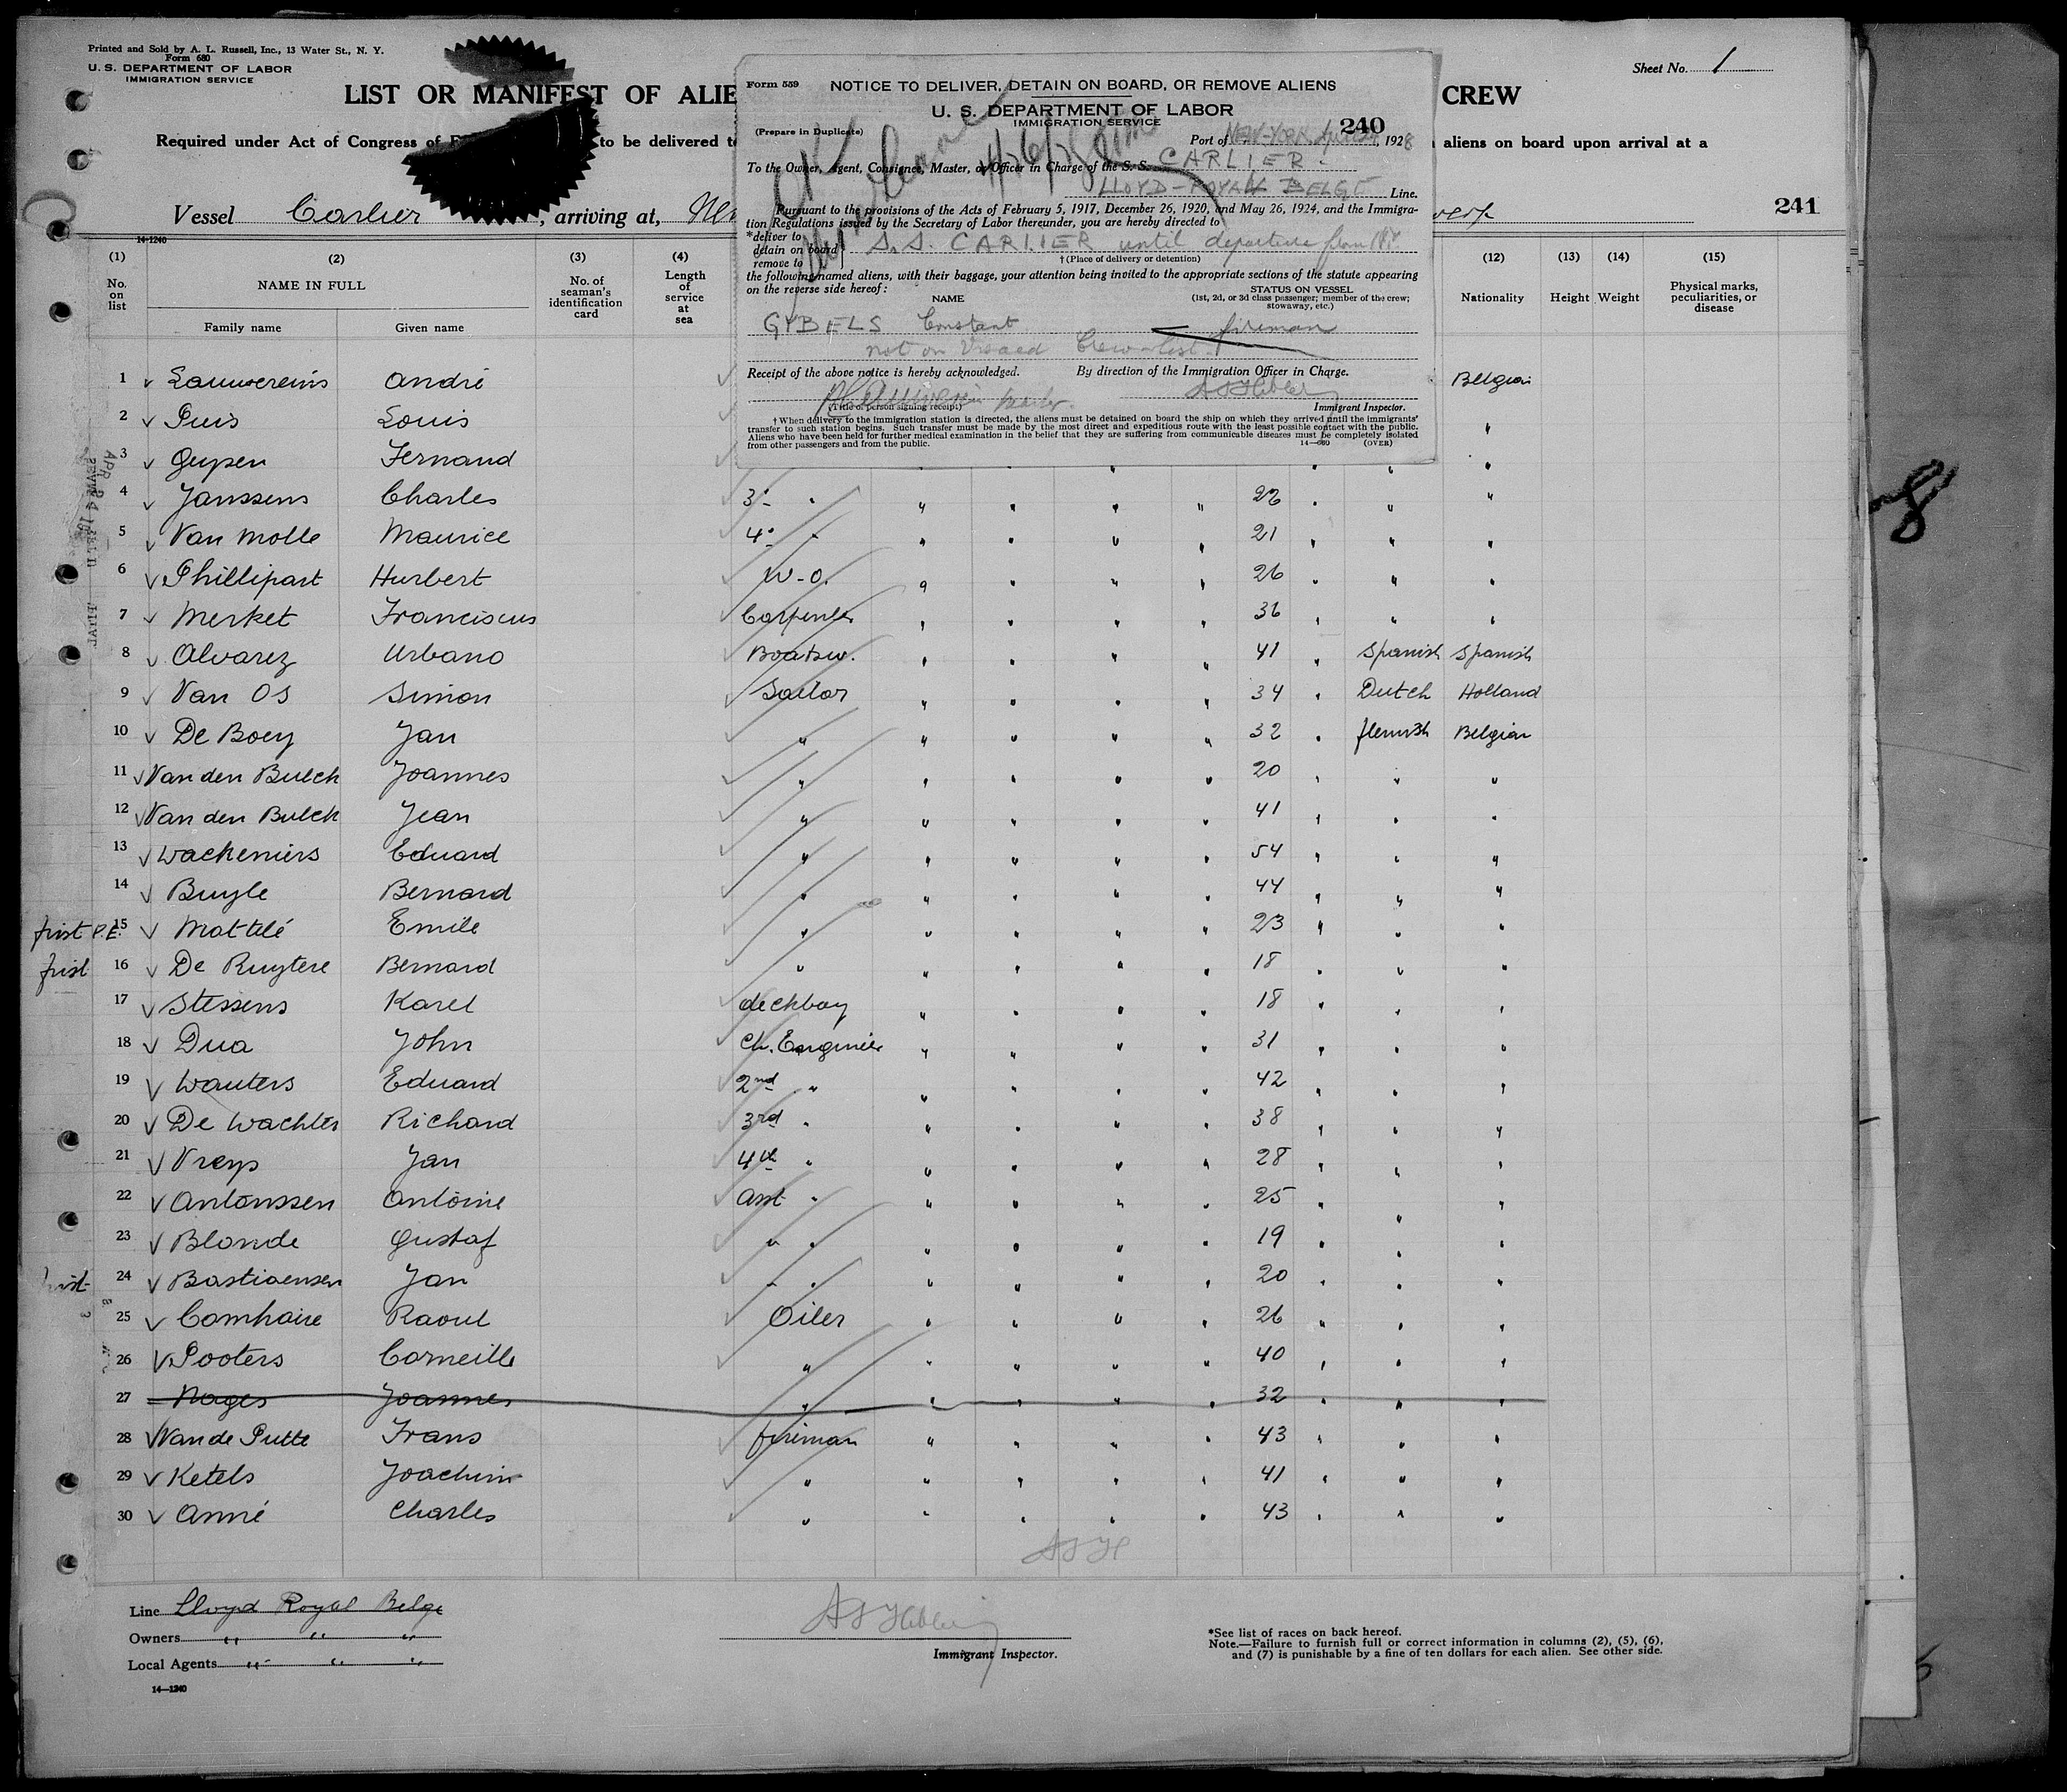 Printed and Sold by A. L. Russell, Inc., 13 Water St., N. Y.
Form 680
U. S. DEPARTMENT OF LABOR
IMMIGRATION SERVICE
Sheet No. 1
LIST OR MANIFEST OF ALIE
CREW
Required under Act of Congress of
to be delivered t
aliens on board upon arrival at a
Vessel Carlier , arriving at,
241
Form 559
NOTICE TO DELIVER, DETAIN ON BOARD, OR REMOVE ALIENS
U. S. DEPARTMENT OF LABOR
IMMIGRATION SERVICE
(Prepare in Duplicate)
240
Port of NEW-YORK , 1928
To the Owner, Agent, Consignee, Master, or Officer in Charge of the S. S. CARLIER
LLOYD-ROYAL BELGE Line.
Pursuant to the provisions of the Acts of February 5, 1917, December 26, 1920, and May 26, 1924, and the Immigra-
tion Regulations issued by the Secretary of Labor thereunder, you are hereby directed to
*deliver to
detain on board S.S. CARLIER until departure from NY.
remove to
†(Place of delivery or detention)
the following named aliens, with their baggage, your attention being invited to the appropriate sections of the statute appearing
on the reverse side hereof:
NAME
STATUS ON VESSEL
(1st, 2d, or 3d class passenger; member of the crew;
stowaway, etc.)
GYBELS Constant fireman
not on Visaed Crew-list
Receipt of the above notice is hereby acknowledged. By direction of the Immigration Officer in Charge.
(Title of person signing receipt) Immigrant Inspector.
†When delivery to the immigration station is directed, the aliens must be detained on board the ship on which they arrived until the immigrants'
transfer to such station begins. Such transfer must be made by the most direct and expeditious route with the least possible contact with the public.
Aliens who have been held for further medical examination in the belief that they are suffering from communicable diseases must be completely isolated
from other passengers and from the public. 14—660 (OVER)
14-1240
(1) (2) (3) (4) (12) (13) (14) (15)
No. on list
NAME IN FULL
Family name Given name
No. of seaman's identification card
Length of service at sea
Nationality Height Weight
Physical marks, peculiarities, or disease
1 Lauwereins André Belgian
2 Puis Louis "
3 Geypen Fernand "
4 Janssens Charles 3° " " " " " 22 " " "
5 Van Molle Maurice 4° " " " " " 21 " " "
6 Phillipart Hurbert W-O. " " " " 26 " " "
7 Merket Franciscus Carpenter " " " " 36 " " "
8 Alvarez Urbano Boatsw. " " " " 41 " Spanish Spanish
9 Van Os Simon Sailor " " " " 34 " Dutch Holland
10 De Boey Jan " " " " " 32 " flemish Belgian
11 Van den Bulck Joannes " " " " " 20 " " "
12 Van den Bulck Jean " " " " " 41 " " "
13 Wackeniers Eduard " " " " " 54 " " "
14 Buyle Bernard " " " " " 44 " " "
first P.E. 15 Mattelé Emile " " " " " 23 " " "
first 16 De Ruytere Bernard " " " " " 18 " " "
17 Stessens Karel deckboy " " " " 18 " " "
18 Dua John Ch. Engineer " " " " 31 " " "
19 Wauters Eduard 2nd " " " " " 42 " " "
20 De Wachter Richard 3rd " " " " " 38 " " "
21 Vreys Jan 4th " " " " " 28 " " "
22 Antonssen Antoine asst " " " " " 25 " " "
23 Blonde Gustaf " " " " " " 19 " " "
24 Bastiaensen Jan " " " " " " 20 " " "
25 Comhaire Raoul Oiler " " " " 26 " " "
26 Pooters Corneille " " " " " 40 " " "
27 Nages Joannes " " " " " 32 " " "
28 Van de Putte Frans fireman " " " " 43 " " "
29 Ketels Joachim " " " " " 41 " " "
30 Anné Charles " " " " " 43 " " "
Line Lloyd Royal Belge
Owners " " "
Local Agents " " "
Immigrant Inspector.
*See list of races on back hereof.
Note.—Failure to furnish full or correct information in columns (2), (5), (6),
and (7) is punishable by a fine of ten dollars for each alien. See other side.
14—1240